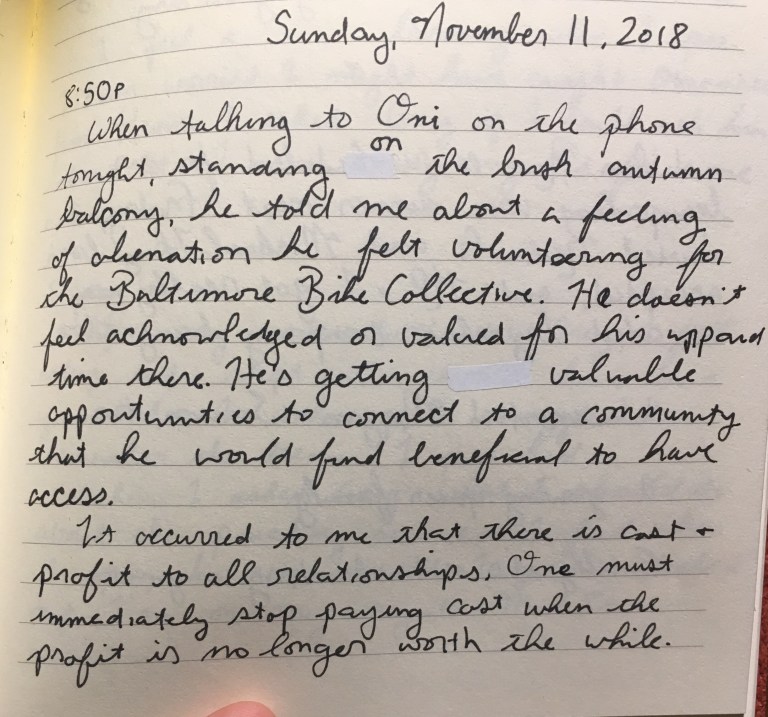 Sunday, November 11, 2018
8:50P
When talking to Oni on the phone
tonight, standing on the brisk autumn
balcony, he told me about a feeling
of alienation he felt volunteering for
the Baltimore Bike Collective. He doesn't
feel acknowledged or valued for his unpaid
time there. He's getting valuable
opportunities to connect to a community
that he would find beneficial to have
access.
It occurred to me that there is cost +
profit to all relationships. One must
immediately stop paying cost when the
profit is no longer worth the while.